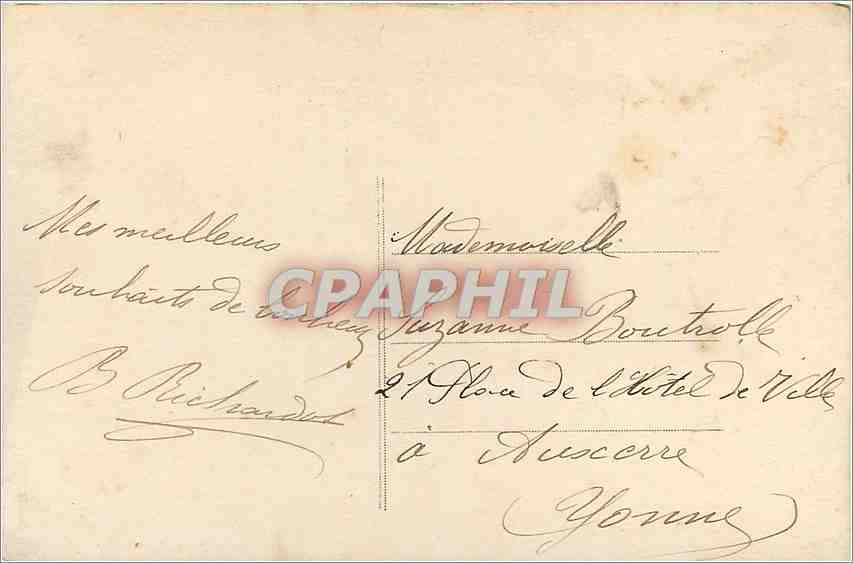 Mes meilleurs
souhaits de bonheur
B Richardot
Mademoiselle
Suzanne Boutrolle
21 Place de l'Hôtel de Ville
à Auxerre
(Yonne)
CPAPHIL